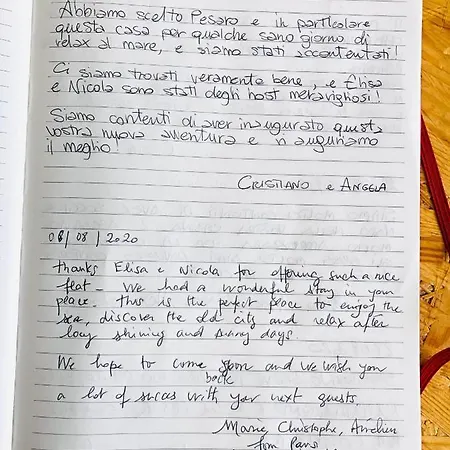 Abbiamo scelto Pesaro e in particolare
questa casa per qualche sano giorno di
relax al mare, e siamo stati accontentati!
Ci siamo trovati veramente bene, e Elisa
e Nicola sono stati degli host meravigliosi!
Siamo contenti di aver inaugurato questa
vostra nuova avventura e vi auguriamo
il meglio!
CRISTIANO e ANGELA
06/08/2020
thanks Elisa e Nicola for offering such a nice
flat - We had a wonderful stay in your
place. this is the perfect place to enjoy the
sea, discover the old city and relax after
long shining and sunny days.
We hope to come soon and we wish you
back
a lot of succes with your next guests.
Marie, Christophe, Aurélien
from Paris